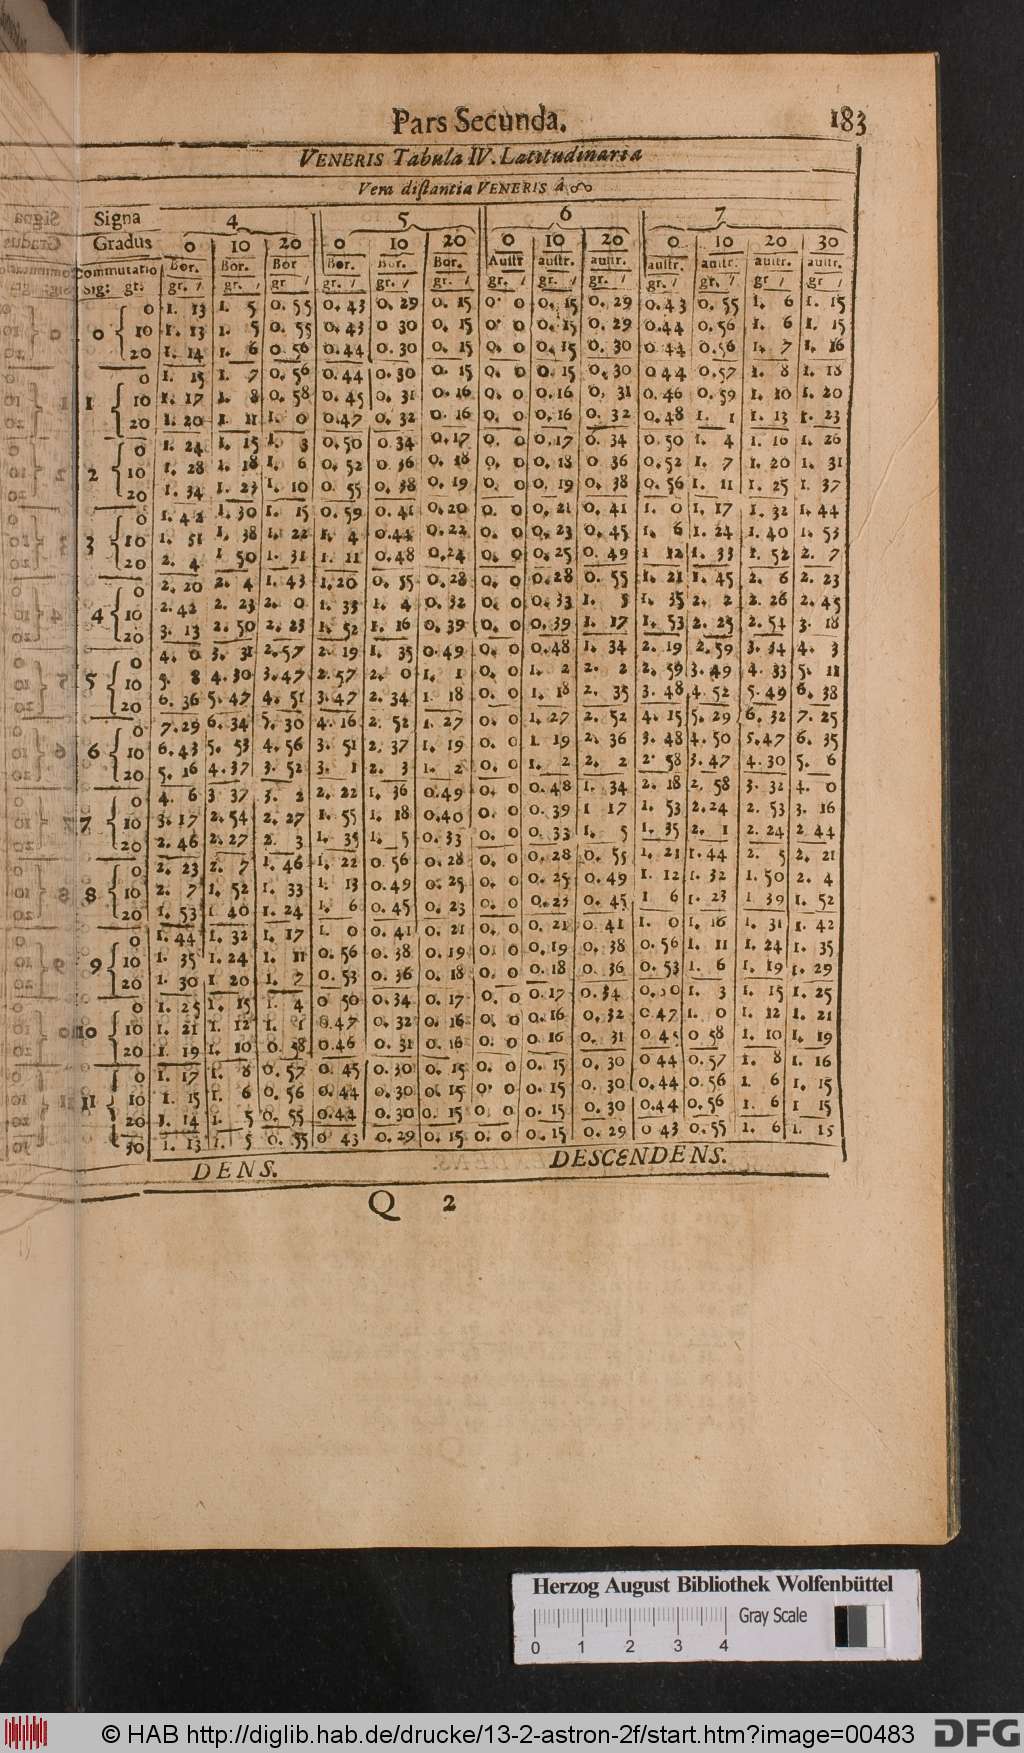 Pars Secunda. 183
VENERIS Tabula IV. Latitudinaria
Vera distantia VENERIS à ☊
Signa 4 5 6 7
Gradus 0 10 20 0 10 20 0 10 20 0 10 20 30
Commutatio Bor. Bor. Bor Bor. Bor. Bor. Austr austr. austr. austr. austr. austr. austr.
Sig: gr: gr. / gr. / gr / gr. / gr. / gr. / gr. / gr. / gr. / gr. / gr. / gr / gr /
0 0 1. 13 1. 5 0. 55 0. 43 0. 29 0. 15 0. 0 0. 15 0. 29 0.43 0. 55 1. 6 1. 15
10 1. 13 1. 5 0. 55 0. 43 0 30 0. 15 0. 0 0. 15 0. 29 0.44 0. 56 1. 6 1. 15
20 1. 14 1. 6 0. 56 0.44 0. 30 0. 15 0. 0 0. 15 0. 30 0 44 0.56 1. 7 1. 16
1 0 1. 15 1. 7 0. 56 0. 44 0. 30 0. 15 0. 0 0. 15 0. 30 0 44 0.57 1. 8 1. 18
10 1. 17 1. 8 0. 58 0. 45 0. 31 0. 16 0. 0 0.16 0. 31 0. 46 0. 59 1. 10 1. 20
20 1. 20 1. 11 1. 0 0.47 0. 32 0. 16 0. 0 0. 16 0. 32 0. 48 1. 1 1. 13 1. 23
2 0 1. 24 1. 15 1. 3 0. 50 0. 34 0. 17 0. 0 0. 17 0. 34 0. 50 1. 4 1. 16 1. 26
10 1. 28 1. 18 1. 6 0. 52 0 36 0. 18 0. 0 0. 18 0 36 0. 52 1. 7 1. 20 1. 31
20 1. 34 1. 23 1. 10 0. 55 0. 38 0. 19 0. 0 0. 19 0. 38 0. 56 1. 11 1. 25 1. 37
3 0 1. 42 1. 30 1. 15 0. 59 0. 41 0. 20 0. 0 0. 21 0. 41 1. 0 1. 17 1. 32 1. 44
10 1. 51 1. 38 1. 22 1. 4 0.44 0. 22 0. 0 0. 23 0. 45 1. 6 1. 24 1. 40 1. 53
20 2. 4 1 50 1. 31 1. 11 0.48 0.24 0. 0 0. 25 0. 49 1 12 1. 33 1. 52 2. 7
4 0 2. 20 2. 4 1. 43 1. 20 0. 55 0. 28 0. 0 0.28 0. 55 1. 21 1. 45 2. 6 2. 23
10 2. 42 2. 23 2. 0 1. 33 1. 4 0. 32 0. 0 0. 33 1. 5 1. 35 2. 2 2. 26 2. 45
20 3. 13 2. 50 2. 23 1. 52 1. 16 0. 39 0. 0 0. 39 1. 17 1. 53 2. 25 2. 54 3. 18
5 0 4. 0 3. 31 2. 57 2. 19 1. 35 0. 49 0. 0 0.48 1. 34 2. 19 2. 59 3. 34 4. 3
10 5. 8 4. 30 3. 47 2. 57 2. 0 1. 1 0. 0 1. 2 2. 2 2. 59 3. 49 4. 33 5. 11
20 6. 36 5. 47 4. 51 3. 47 2. 34 1. 18 0. 0 1. 18 2. 35 3. 48 4. 52 5. 49 6. 38
6 0 7. 29 6. 34 5. 30 4. 16 2. 52 1. 27 0. 0 1. 27 2. 52 4. 15 5. 29 6. 32 7. 25
10 6. 43 5. 53 4. 56 3. 51 2. 37 1. 19 0. 0 1. 19 2. 36 3. 48 4. 50 5. 47 6. 35
20 5. 16 4. 37 3. 52 3. 1 2. 3 1. 2 0. 0 1. 2 2. 2 2. 58 3. 47 4. 30 5. 6
7 0 4. 6 3 37 3. 2 2. 22 1. 36 0.49 0. 0 0. 48 1. 34 2. 18 2. 58 3. 32 4. 0
10 3. 17 2. 54 2. 27 1. 55 1. 18 0.40 0. 0 0. 39 1 17 1. 53 2. 24 2. 53 3. 16
20 2. 46 2. 27 2. 3 1. 35 1. 5 0. 33 0. 0 0. 33 1. 5 1. 35 2. 1 2. 24 2 44
8 0 2. 23 2. 7 1. 46 1. 22 0. 56 0. 28 0. 0 0. 28 0. 55 1. 21 1. 44 2. 5 2. 21
10 2. 7 1. 52 1. 33 1. 13 0.49 0. 25 0. 0 0. 25 0. 49 1. 12 1. 32 1. 50 2. 4
20 1. 53 1 40 1. 24 1. 6 0. 45 0. 23 0. 0 0. 23 0. 45 1 6 1. 23 1 39 1. 52
9 0 1. 44 1. 32 1. 17 1. 0 0. 41 0. 21 0. 0 0. 21 0. 41 1. 0 1. 16 1. 31 1. 42
10 1. 35 1. 24 1. 11 0. 56 0. 38 0. 19 0. 0 0. 19 0. 38 0. 56 1. 11 1. 24 1. 35
20 1. 30 1 20 1. 7 0. 53 0. 36 0. 18 0. 0 0. 18 0. 36 0. 53 1. 6 1. 19 1. 29
10 0 1. 25 1. 15 1. 4 0 50 0. 34 0. 17 0. 0 0. 17 0. 34 0. 50 1. 3 1. 15 1. 25
10 1. 21 1. 12 1. 1 0.47 0. 32 0. 16 0. 0 0. 16 0. 32 0 47 1. 0 1. 12 1. 21
20 1. 19 1. 10 0. 58 0.46 0. 31 0. 16 0. 0 0 16 0. 31 0 45 0 58 1. 10 1. 19
11 0 1. 17 1. 8 0. 57 0. 45 0. 30 0. 15 0. 0 0. 15 0. 30 0 44 0. 57 1. 8 1. 16
10 1. 15 1. 6 0. 56 0. 44 0. 30 0. 15 0. 0 0. 15 0. 30 0. 44 0. 56 1. 6 1. 15
20 1. 14 1. 5 0. 55 0.44 0. 30 0. 15 0 0 0. 15 0. 30 0.44 0. 56 1. 6 1 15
30 1. 13 1. 5 0. 55 0 43 0. 29 0. 15 0. 0 0. 15 0. 29 0 43 0. 55 1. 6 1. 15
DENS. DESCENDENS.
Q 2
Herzog August Bibliothek Wolfenbüttel
Gray Scale
0 1 2 3 4
© HAB http://diglib.hab.de/drucke/13-2-astron-2f/start.htm?image=00483 DFG